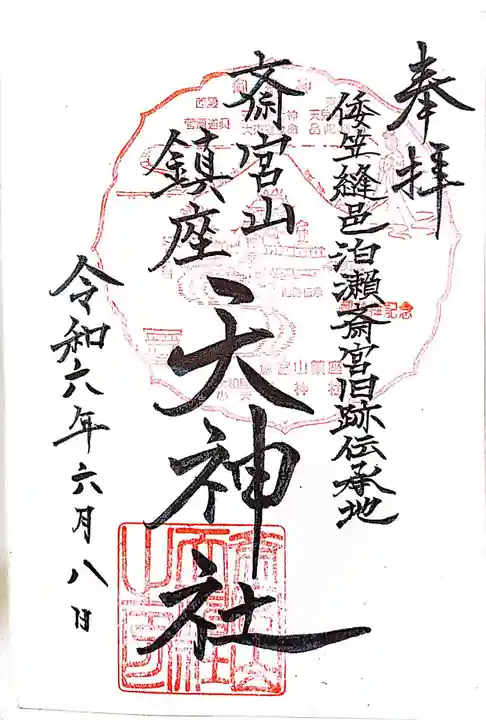 奉拝
倭笠縫邑泊瀬斎宮旧跡伝承地
斎宮山
鎮座
天神社
令和六年六月八日